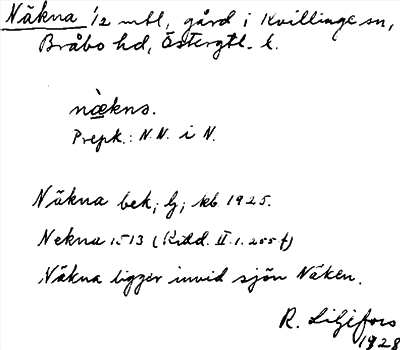 Näkna 1/2 mtl, gård i Kvillinge sn,
Bråbo hd, Östergtl. l.
nækns.
Prepk.: N.N. i N.
Näkna bek; lj; kb 1925.
Nekna 1513 (Kidd. II. 1. 255 f)
Näkna ligger invid sjön Näken.
R. Liljefors
1928